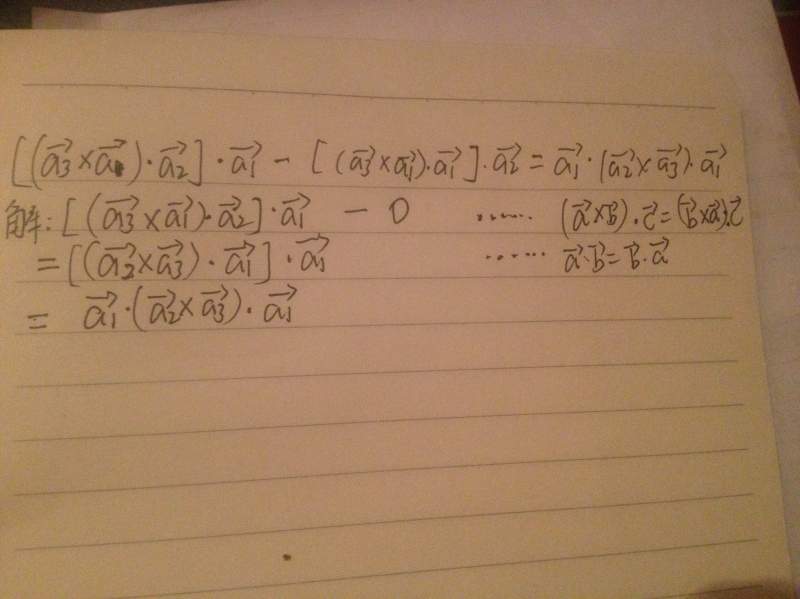 [(a₃⃗ × a₁⃗)·a₂⃗]·a₁⃗ − [(a₃⃗ × a₁⃗)·a₁⃗]·a₂⃗ = a₁⃗·(a₂⃗ × a₃⃗)·a₁⃗
解: [(a₃⃗ × a₁⃗)·a₂⃗]·a₁⃗ − 0 ...... (a⃗ × b⃗)·c⃗ = (b⃗ × a⃗)·c⃗
= [(a₂⃗ × a₃⃗)·a₁⃗]·a₁⃗ ...... a⃗·b⃗ = b⃗·a⃗
= a₁⃗·(a₂⃗ × a₃⃗)·a₁⃗